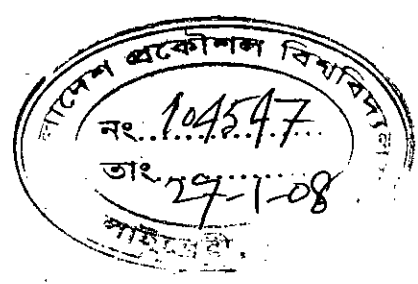 বাংলাদেশ প্রকৌশল বিশ্ববিদ্যালয়
নং..104547..
তাং..27-1-08
লাইব্রেরী.